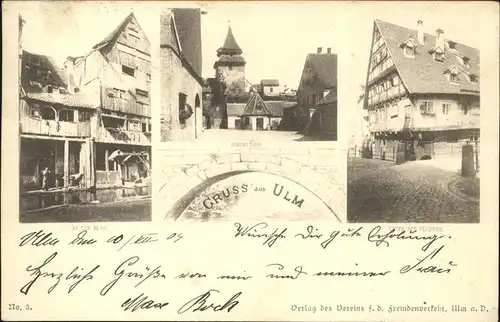 GRUSS aus ULM
Ulm den 10/VII 04 Wünsche Dir gute Erholung.
Herzliche Grüße von mir und meiner Frau
Max Bock
No. 5. Verlag des Vereins f. d. Fremdenverkehr, Ulm a. D.